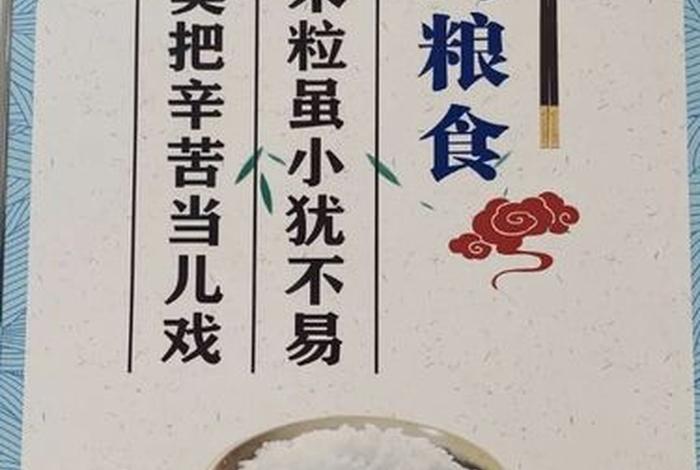 粮食
米粒虽小犹不易
莫把辛苦当儿戏